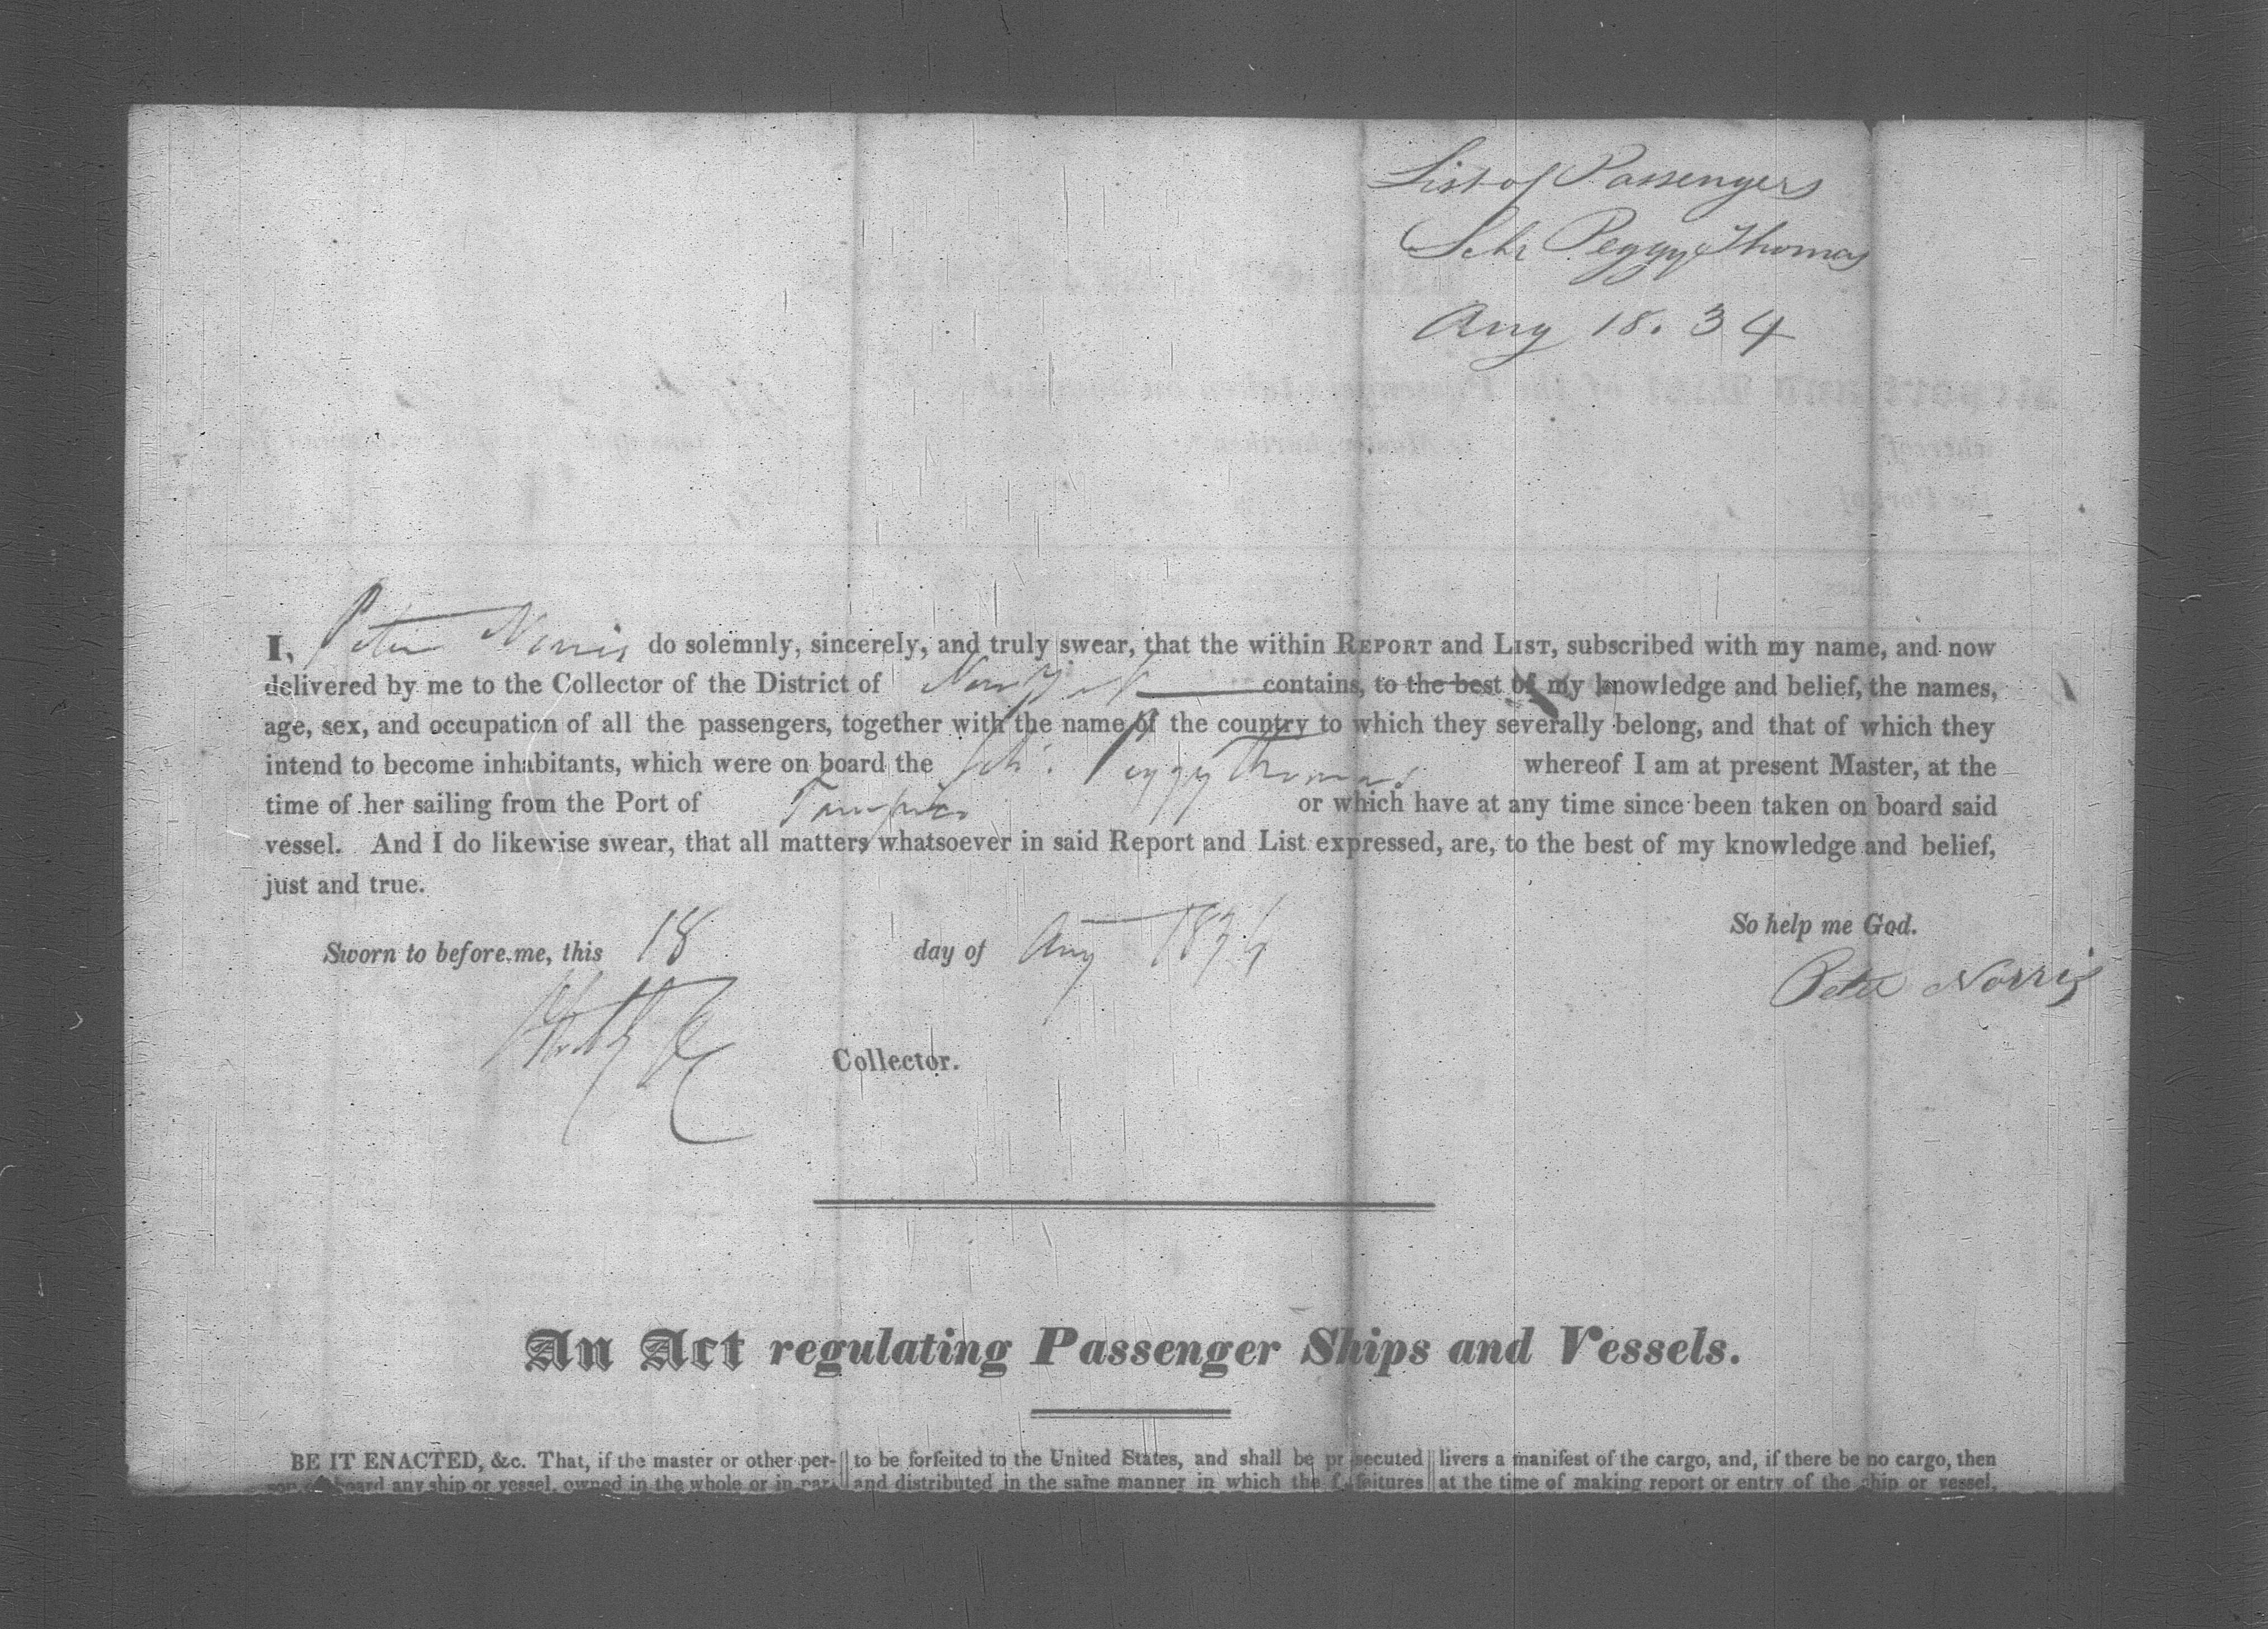 List of Passengers
Schr Peggy Thomas
Aug 18. 34
I, Peter Norris do solemnly, sincerely, and truly swear, that the within REPORT and LIST, subscribed with my name, and now
delivered by me to the Collector of the District of New York contains, to the best of my knowledge and belief, the names,
age, sex, and occupation of all the passengers, together with the name of the country to which they severally belong, and that of which they
intend to become inhabitants, which were on board the Schr. Peggy Thomas whereof I am at present Master, at the
time of her sailing from the Port of Tampico or which have at any time since been taken on board said
vessel. And I do likewise swear, that all matters whatsoever in said Report and List expressed, are, to the best of my knowledge and belief,
just and true.
So help me God.
Sworn to before me, this 18 day of Aug 1834
Peter Norris
Collector.
An Act regulating Passenger Ships and Vessels.
BE IT ENACTED, &c. That, if the master or other per-
board any ship or vessel, owned in the whole or in par-
to be forfeited to the United States, and shall be pr secuted
and distributed in the same manner in which the f feitures
livers a manifest of the cargo, and, if there be no cargo, then
at the time of making report or entry of the ship or vessel,